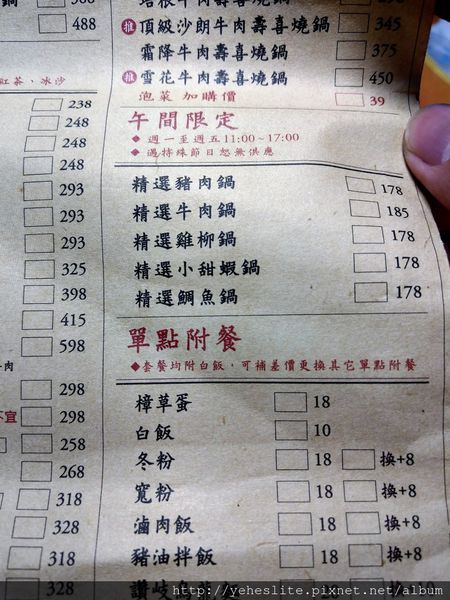 鍋 368
488
紅茶、冰沙
238
248
248
248
293
293
293
325
398
415
598
牛肉
298
不宜 298
258
268
318
328
318
328
培根牛肉壽喜燒鍋
推 頂級沙朗牛肉壽喜燒鍋 345
霜降牛肉壽喜燒鍋 375
推 雪花牛肉壽喜燒鍋 450
泡菜 加購價 39
午間限定
◆ 週一至週五11:00~17:00
◆ 遇特殊節日恕無供應
精選豬肉鍋 178
精選牛肉鍋 185
精選雞柳鍋 178
精選小甜蝦鍋 178
精選鯛魚鍋 178
單點附餐
◆套餐均附白飯，可補差價更換其它單點附餐
樟草蛋 18
白飯 10
冬粉 18 換+8
寬粉 18 換+8
滷肉飯 18 換+8
豬油拌飯 18 換+8
讚岐烏龍麵
http://yeheslite.pixnet.net/album